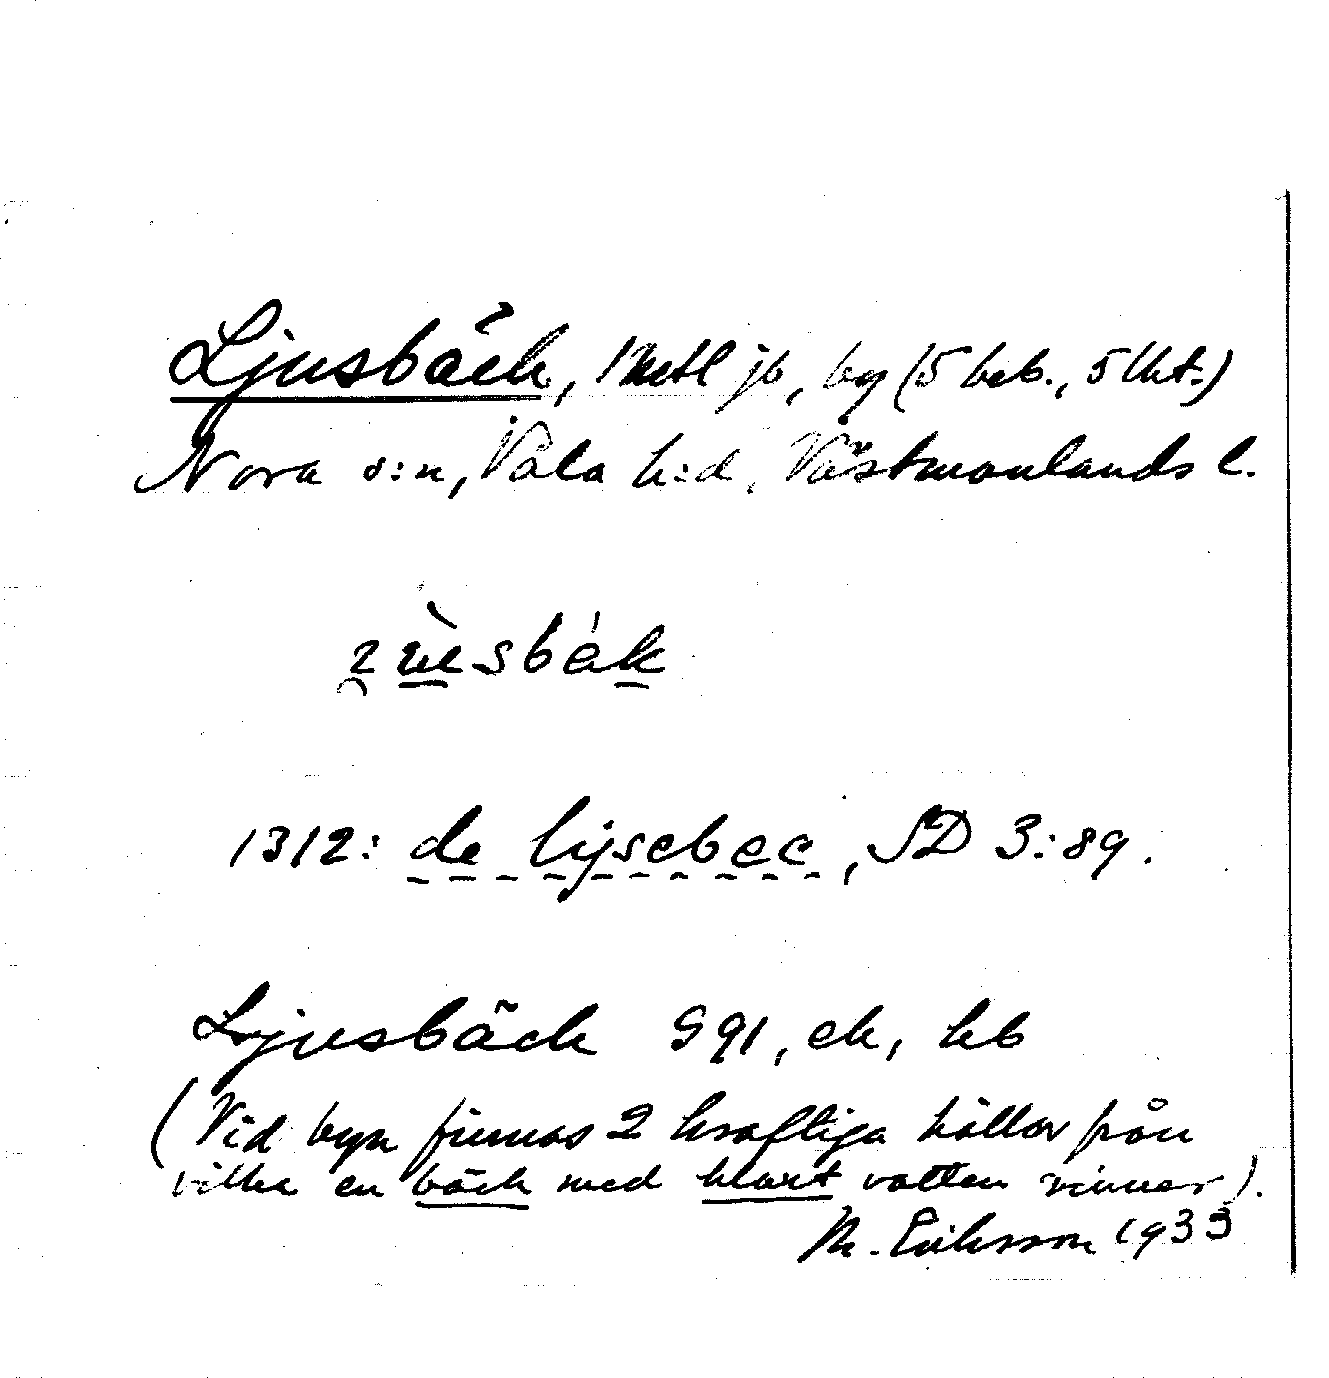 Ljusbäck, 1 mtl jb, by (5 beb., 5 lht.)
Nora s:n, Våla h:d, Västmanlands l.
1312: de lijsebec, SD 3:89.
Ljusbäck G 91, ek, kb
(Vid byn finnas 2 kraftiga källor från
vilka en bäck med klart vatten rinner).
M. Eriksson 1933